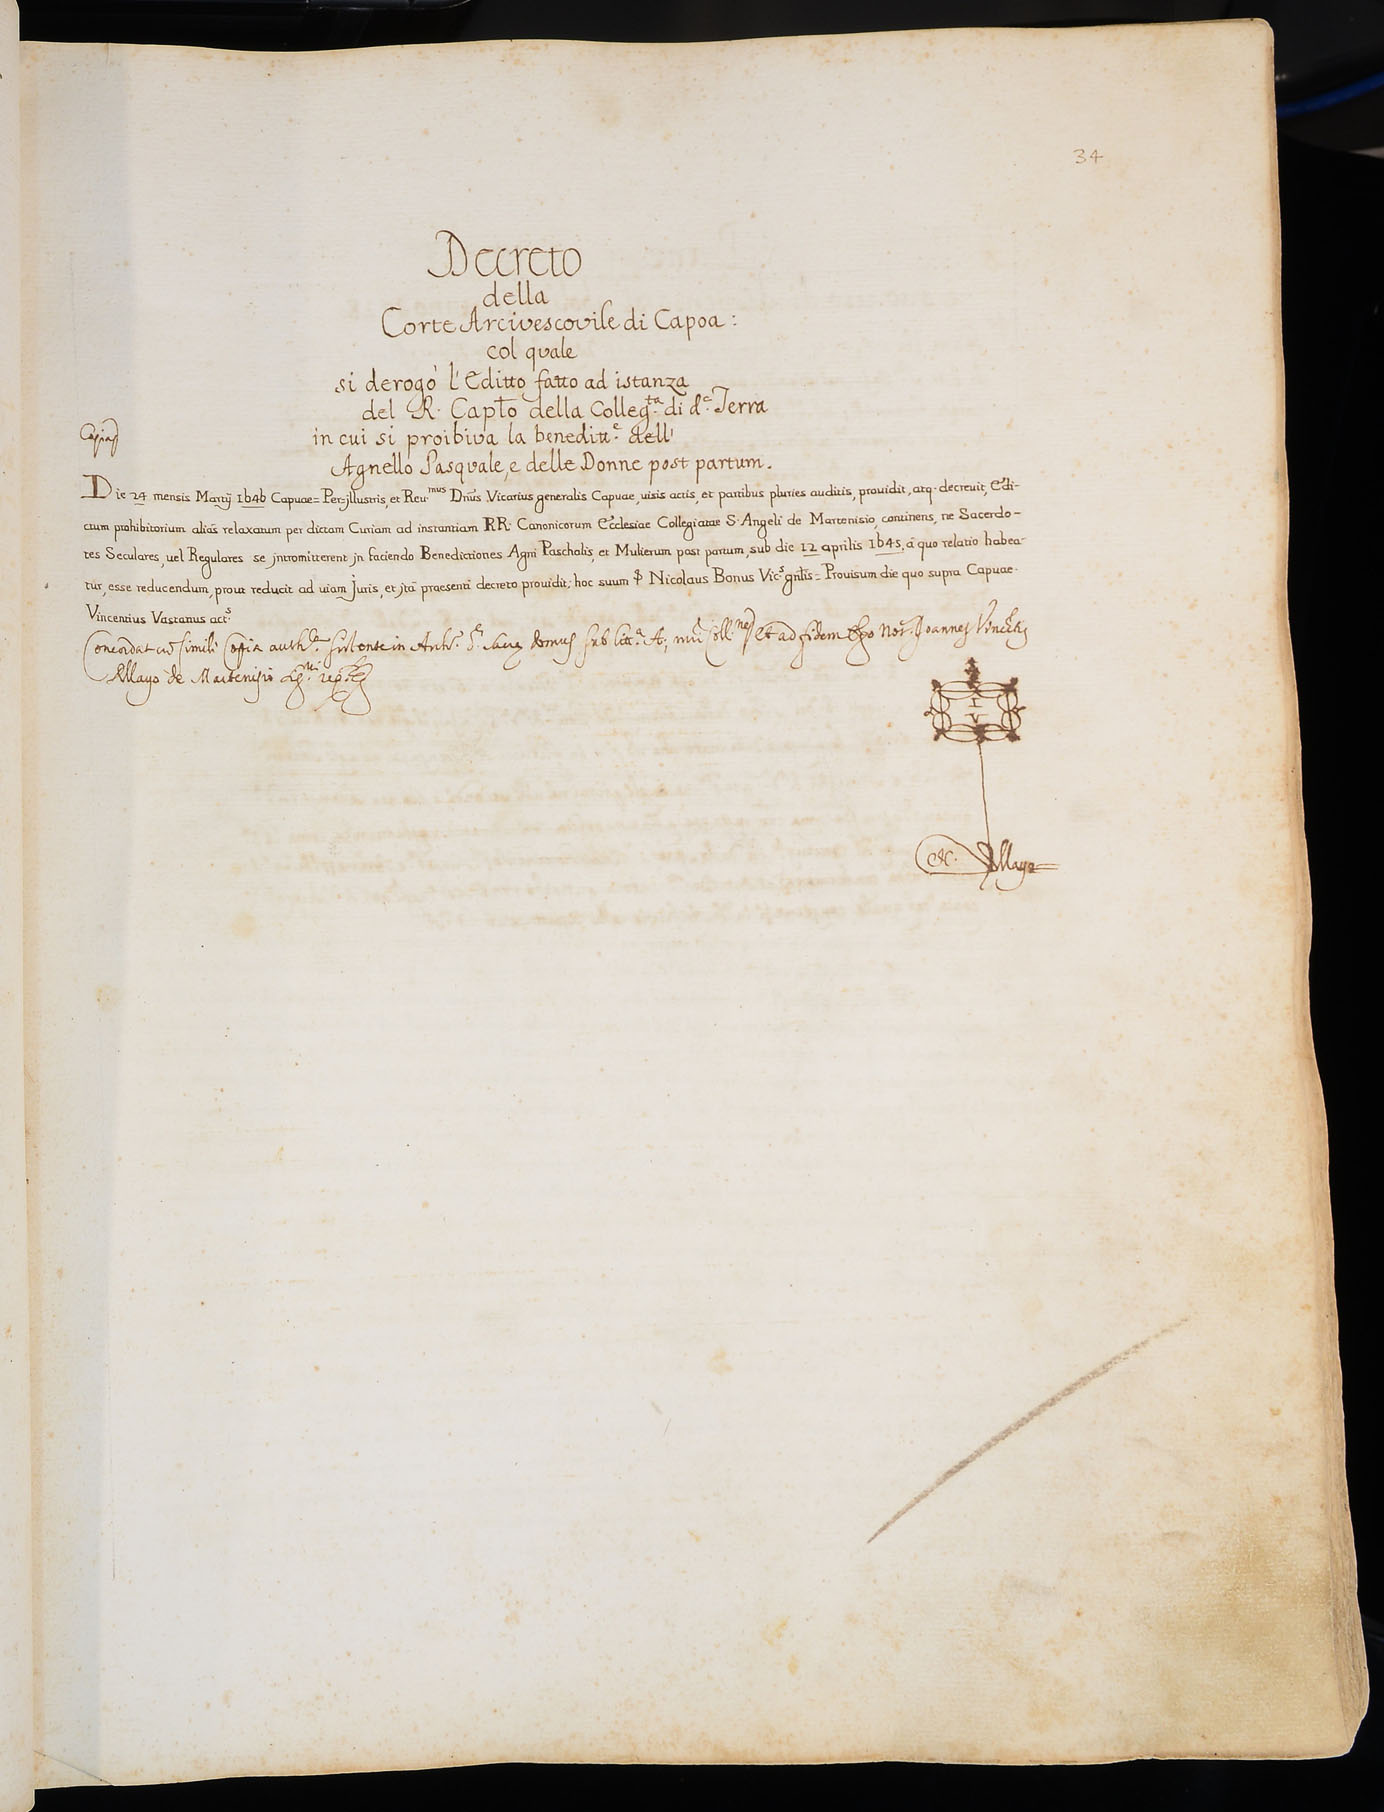 34
Decreto
della
Corte Arcivescovile di Capoa:
col quale
si derogò l'Editto fatto ad istanza
del R. Capto della Collegta di da Terra
in cui si proibiva la beneditte dell'
Copia
Agnello Pasquale, e delle Donne post partum.
Die 24 mensis Martij 1646 Capuae= Per-jllustris, et Reu.mus Dnus Vicarius generalis Capuae, uisis actis, et partibus pluries auditis, prouidit, atq. decreuit, Edi-
ctum prohibitorium aliàs relaxatum per dictam Curiam ad instantiam RR. Canonicorum Ecclesiae Collegiatae S. Angeli de Martenisio, continens, ne Sacerdo-
tes Seculares, uel Regulares se jntromitterent jn faciendo Benedictiones Agni Paschalis, et Mulierum post partum, sub die 12 aprilis 1645, à quo relatio habea-
tur, esse reducendum, prout reducit ad uiam Juris, et jtà praesenti decreto prouidit; hoc suum &. Nicolaus Bonus Vic.s gnlis = Prouisum die quo supra Capuae.
Vincentius Vastanus act.s
Concordat cù simili Copia auth.ca sistente in Arch.o domus sub litt.a A, Et ad fidem Ego Not. Joannes Vincen.s
Mayo de Martenisio
I V
&c. Mayo